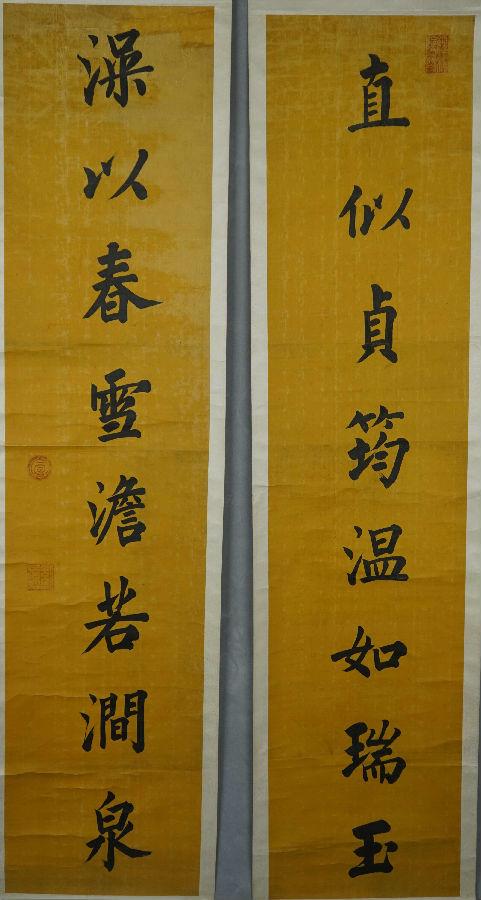 直似貞筠温如瑞玉
澡以春雪澹若澗泉